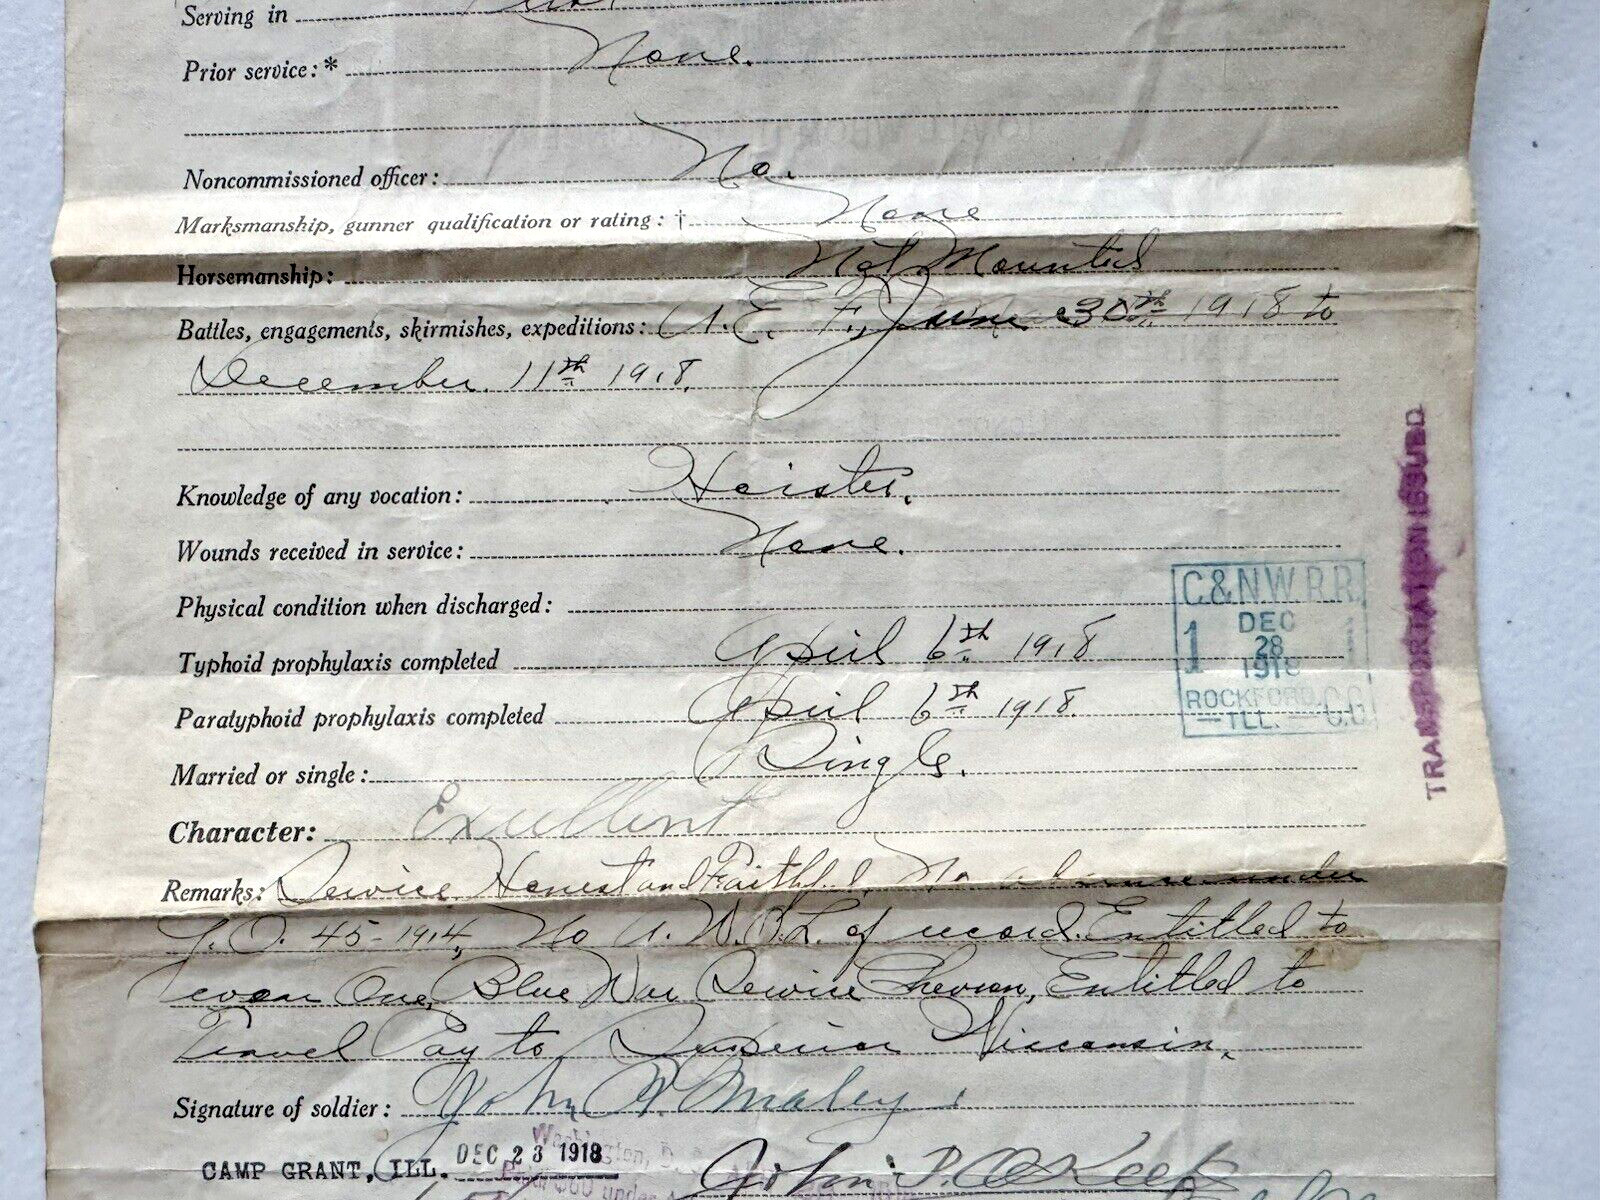 Serving in
Prior service:* None.
Noncommissioned officer: No.
Marksmanship, gunner qualification or rating: † None
Horsemanship: Not Mounted
Battles, engagements, skirmishes, expeditions: A. E. F., June 30th 1918 to
December 11th 1918.
Knowledge of any vocation:
Wounds received in service: None.
Physical condition when discharged:
Typhoid prophylaxis completed April 6th 1918
Paratyphoid prophylaxis completed April 6th 1918.
Married or single: Single.
Character: Excellent
Remarks: Service Honest and Faithful, No absence under
G.O. 45-1914, No A.W.O.L. of record. Entitled to
wear One Blue War Service Chevron, Entitled to
Travel Pay to Superior Wisconsin.
Signature of soldier: John Maley
CAMP GRANT, ILL. DEC 23 1918
John P. O'Keefe
C.&N.W.R.R.
1 DEC 28 1918 1
ROCKFORD,
ILL. C.G
TRANSPORTATION ISSUED